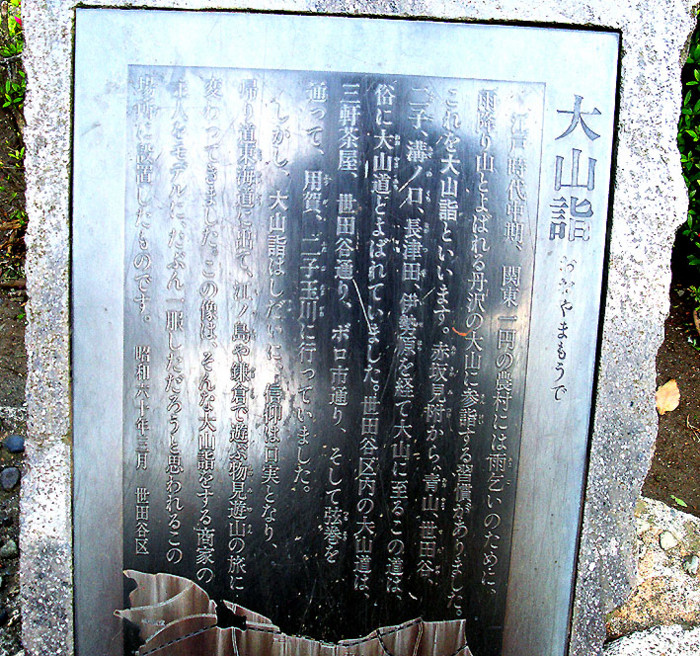 大山詣 おおやまもうで
江戸時代中期、関東一円の農村には雨乞いのために、
雨降り山とよばれる丹沢の大山に参詣する習慣がありました。
これを大山詣といいます。赤坂見附から、青山、世田谷、
二子、溝ノ口、長津田、伊勢原を経て大山に至るこの道は、
俗に大山道とよばれていました。世田谷区内の大山道は、
三軒茶屋、世田谷通り、ボロ市通り、そして弦巻を
通って、用賀、二子玉川に行っていました。
しかし、大山詣はしだいに、信仰は口実となり、
帰り道東海道に出て、江ノ島や鎌倉で遊ぶ物見遊山の旅に
変わってきました。この像は、そんな大山詣をする商家の
主人をモデルに、たぶん一服しただろうと思われるこの
場所に設置したものです。 昭和六十年三月 世田谷区